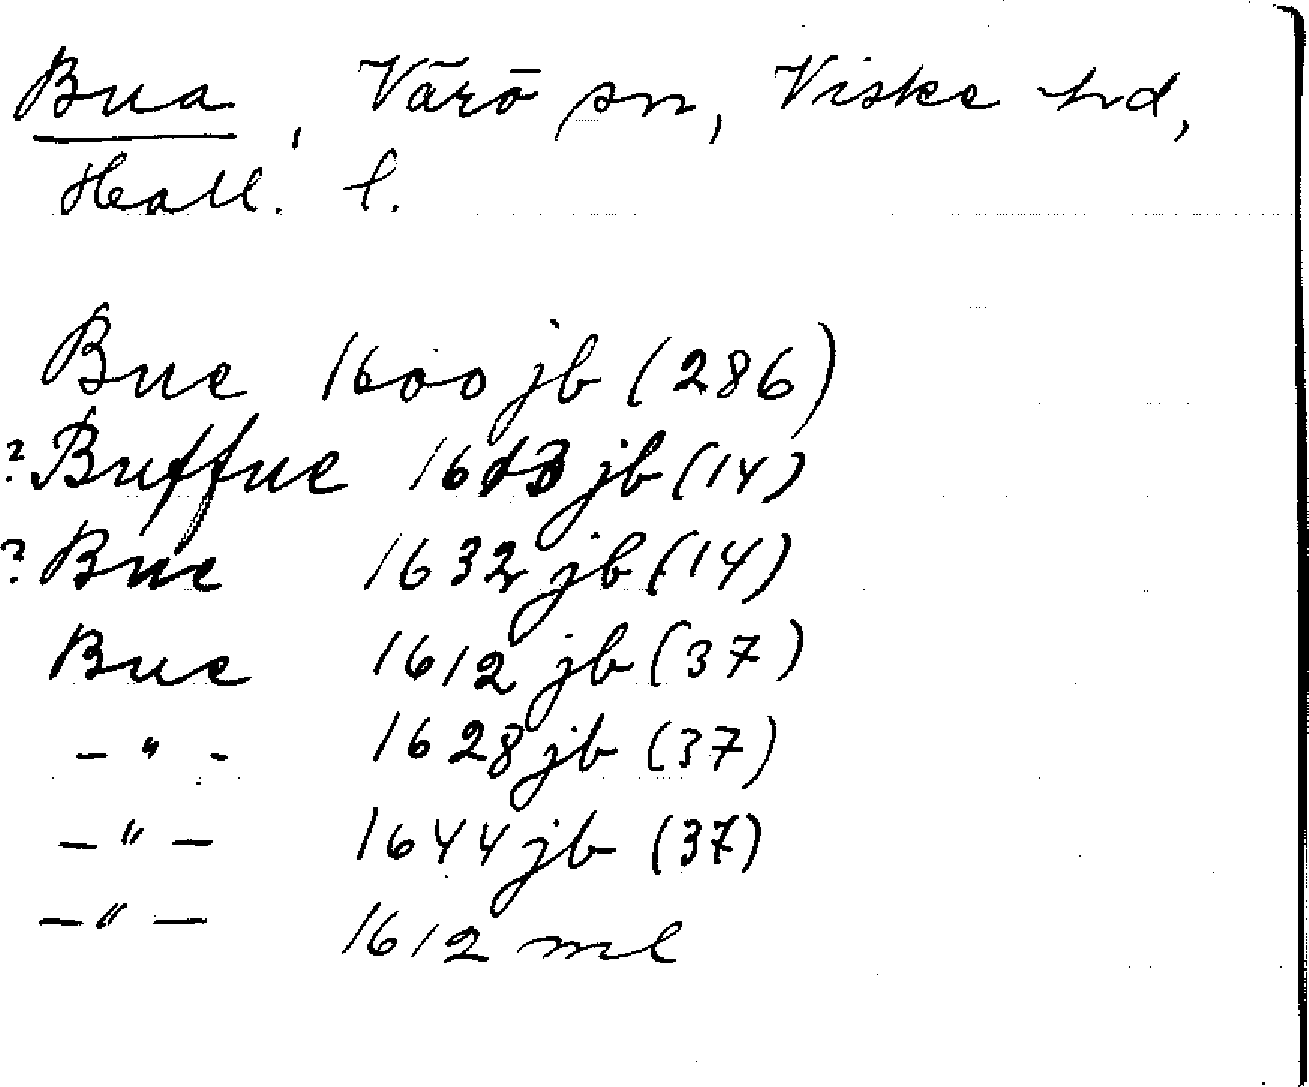 Bua, Värö sn, Viske hd,
Hall. l.
Bue 1600 jb (286)
? Buffue jb (14)
? Bue 1632 jb (14)
Bue 1612 jb (37)
– " – 1628 jb (37)
– " – 1644 jb (37)
– " – 1612 ml